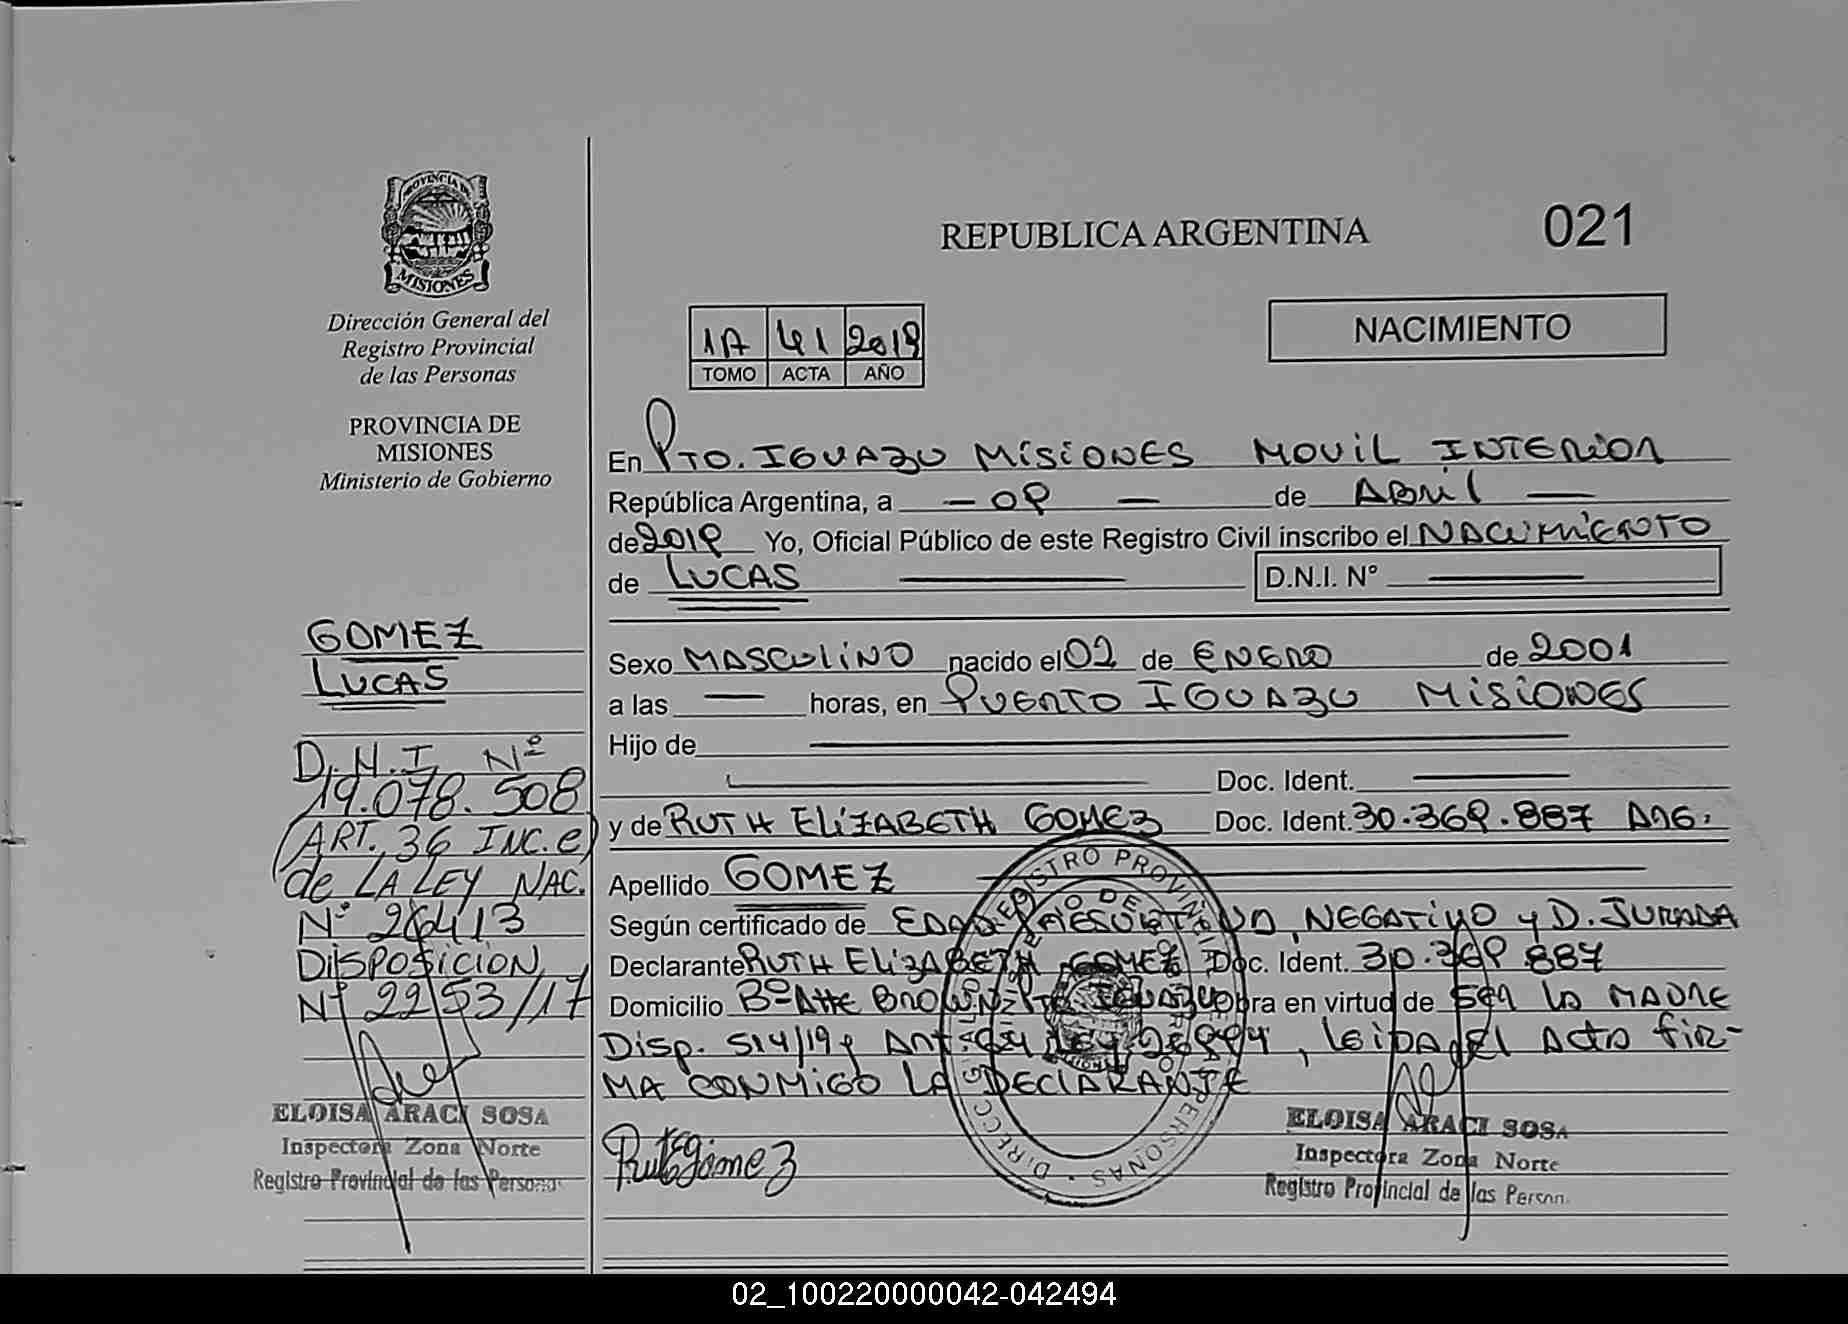 PROVINCIA DE
MISIONES
Dirección General del
Registro Provincial
de las Personas
PROVINCIA DE
MISIONES
Ministerio de Gobierno
GOMEZ
LUCAS
D.N.I. Nº
19.078.508
(ART. 36 INC. e)
de LA LEY NAC.
Nº 26413
DISPOSICION
Nº 2253/17
ELOISA ARACI SOSA
Inspectora Zona Norte
Registro Provincial de las Personas
REPUBLICA ARGENTINA
021
1A 41 2019
TOMO ACTA AÑO
NACIMIENTO
En Pto. IGUAZU MISIONES MOVIL INTERIOR
República Argentina, a — 09 — de ABRIL —
de 2019 Yo, Oficial Público de este Registro Civil inscribo el NACIMIENTO
de LUCAS — D.N.I. Nº —
Sexo MASCULINO nacido el 02 de ENERO de 2001
a las — horas, en PUERTO IGUAZU MISIONES
Hijo de —
Doc. Ident. —
y de RUTH ELIZABETH GOMEZ Doc. Ident. 30.369.887 ARG.
Apellido GOMEZ
Según certificado de EDAD, NEGATIVO y D. JURADA
Declarante RUTH ELIZABETH GOMEZ Doc. Ident. 30.369 887
Domicilio Bº Atte BROWN Pto. IGUAZU obra en virtud de SER LA MADRE
Disp. 514/19 , LEIDA EL ACTA FIR-
MA CONMIGO LA DECLARANTE
Ruth Gomez
ELOISA ARACI SOSA
Inspectora Zona Norte
Registro Provincial de las Person.
02_100220000042-042494